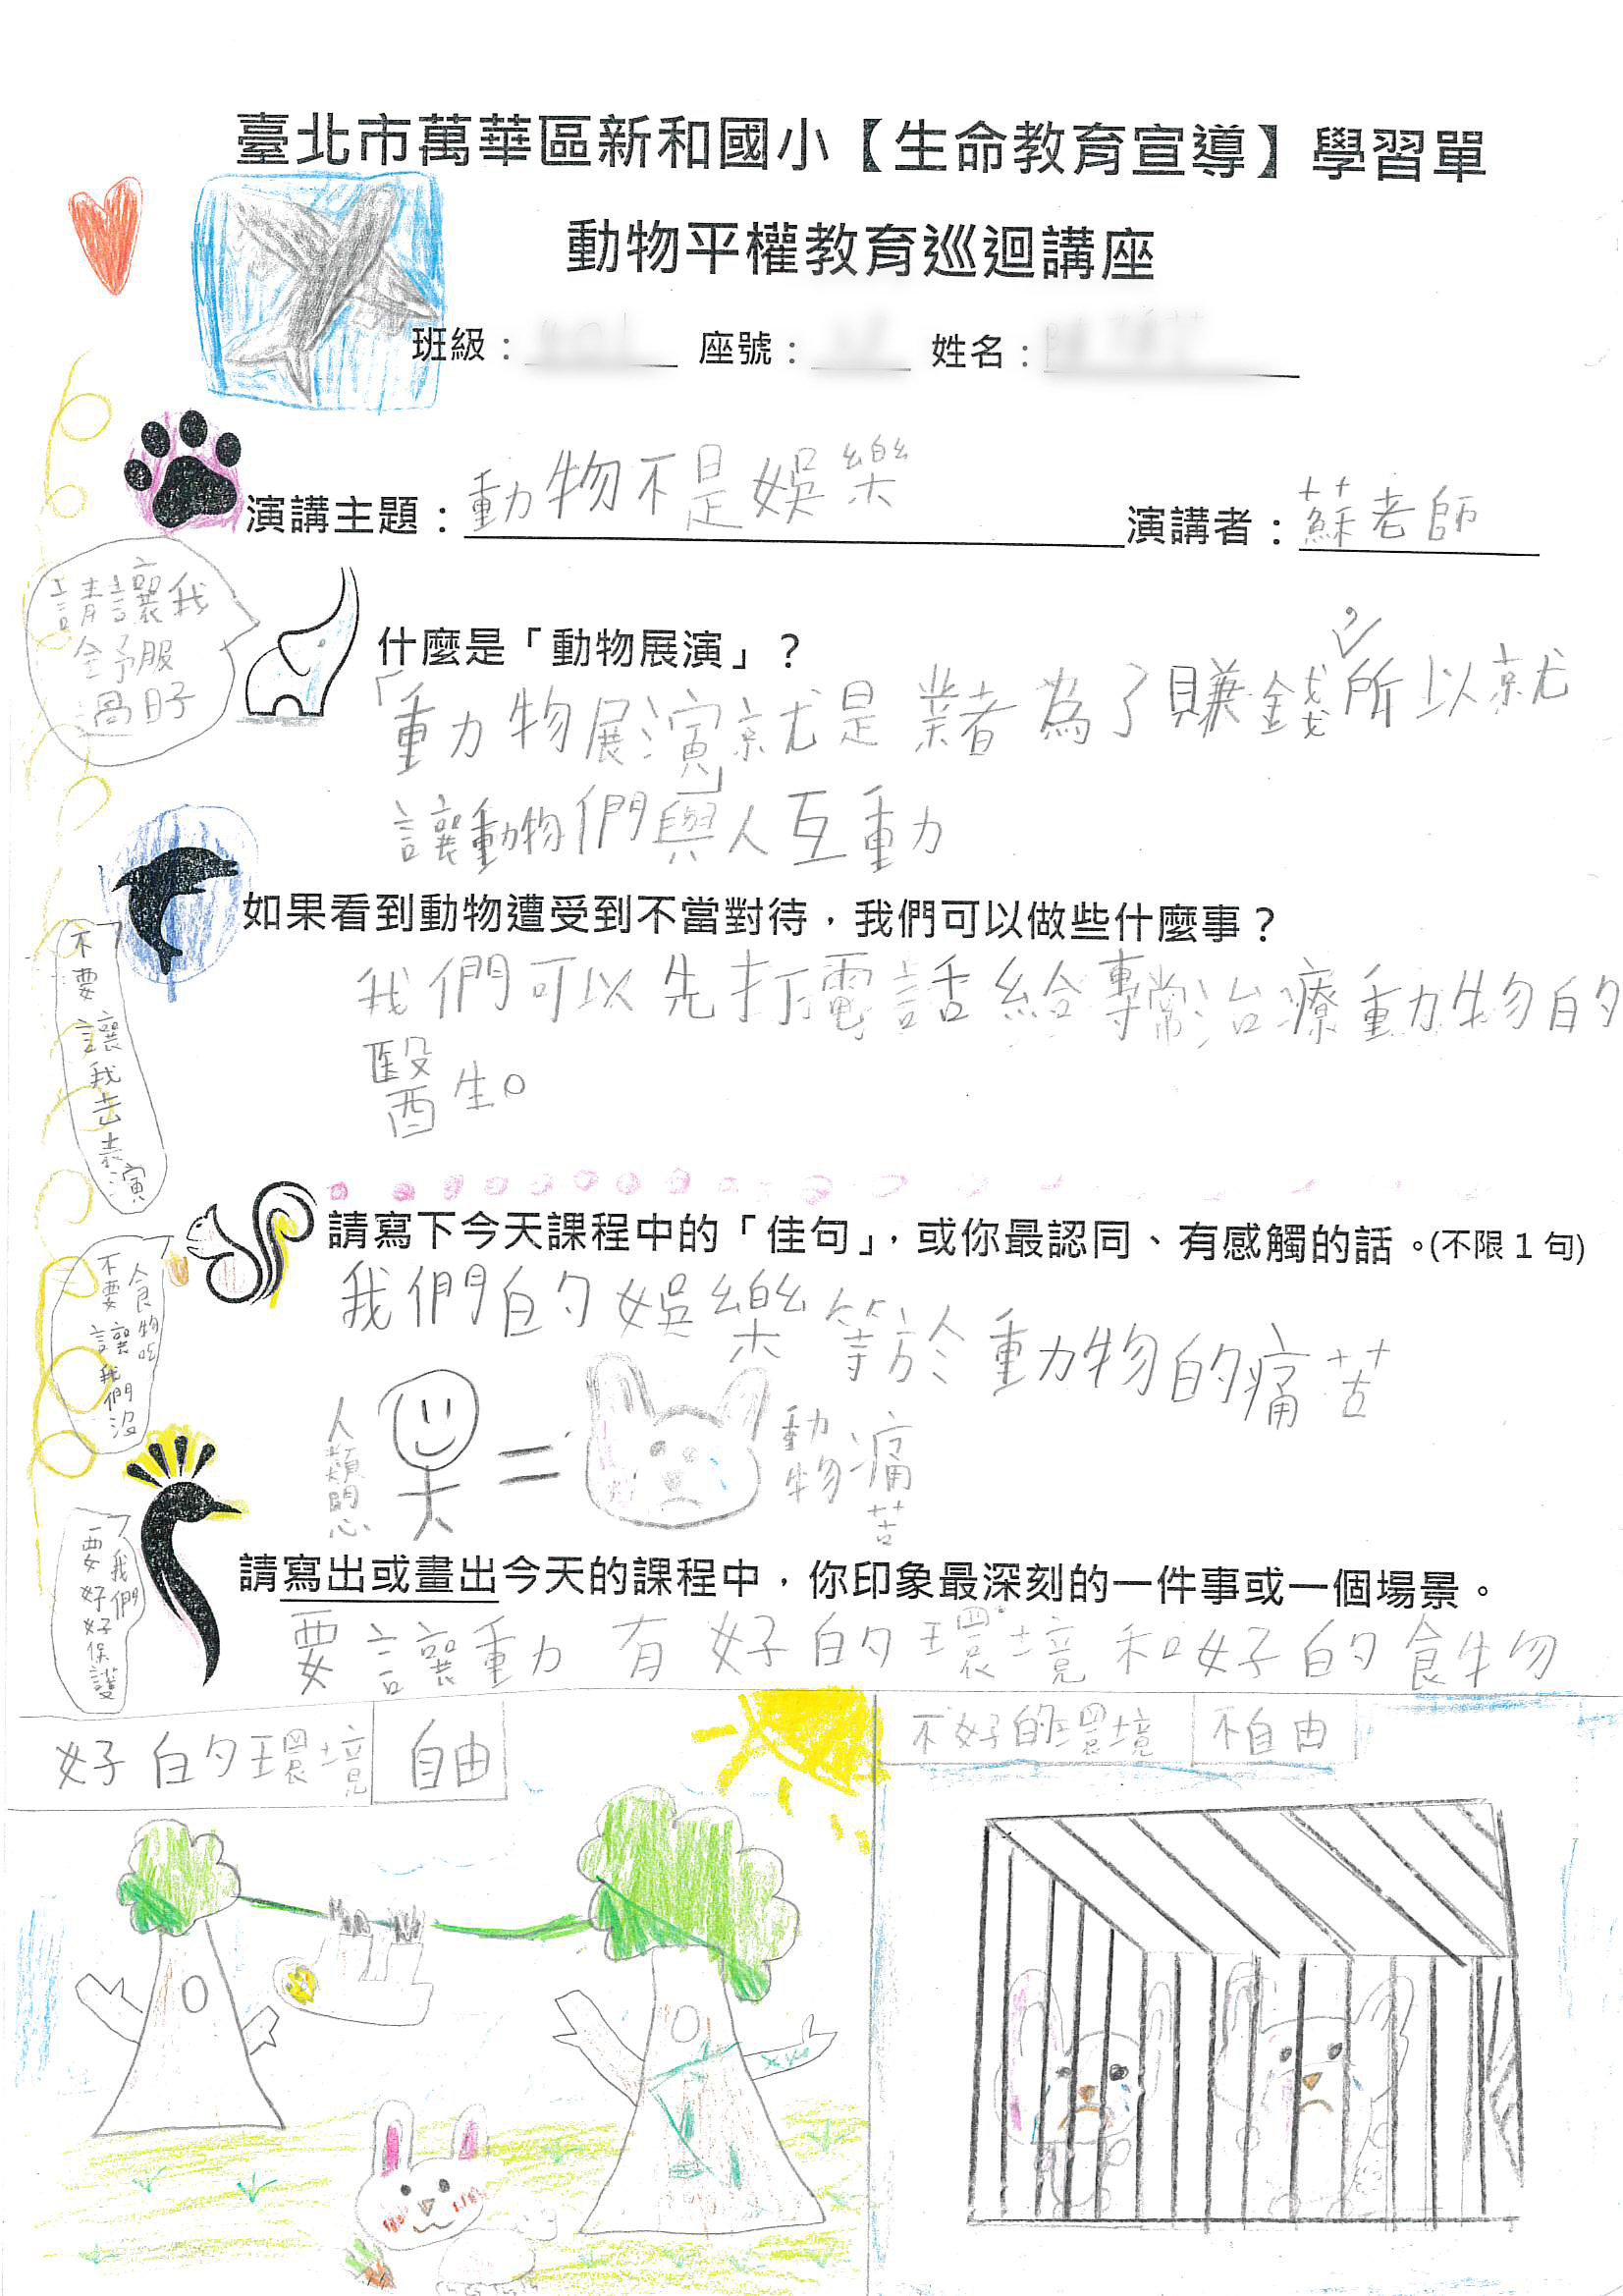 臺北市萬華區新和國小【生命教育宣導】學習單
動物平權教育巡迴講座
班級：
座號：
姓名：
演講主題：動物不是娛樂
演講者：蘇老師
請讓我
舒服
過日子
什麼是「動物展演」？
「動物展演」就是業者為了賺錢，所以就
讓動物們與人互動
不要讓我去表演
如果看到動物遭受到不當對待，我們可以做些什麼事？
我們可以先打電話給專常治療動物的
醫生。
不要讓我們沒
食物吃
請寫下今天課程中的「佳句」，或你最認同、有感觸的話。(不限1句)
我們的娛樂等於動物的痛苦
人類開心
=
動物痛苦
我們
要好好保護
請寫出或畫出今天的課程中，你印象最深刻的一件事或一個場景。
要讓動有好的環境和好的食物
好的環境
自由
不好的環境
不自由